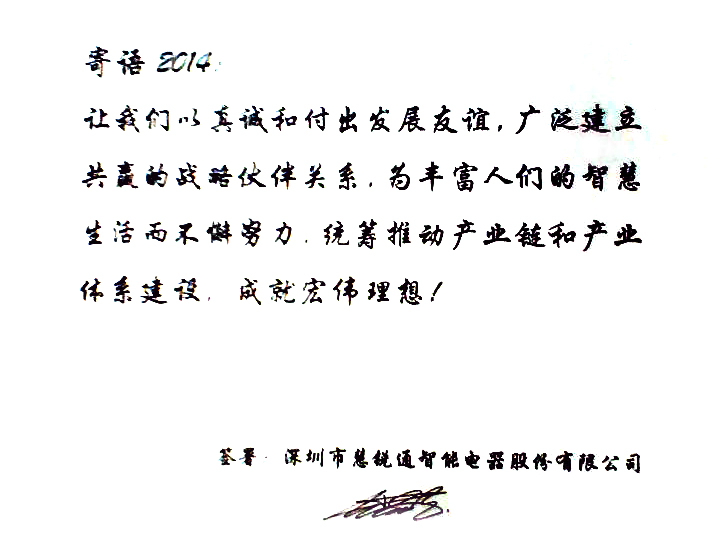 寄语2014:
让我们以真诚和付出发展友谊,广泛建立
共赢的战略伙伴关系,为丰富人们的智慧
生活而不懈努力,统筹推动产业链和产业
体系建设,成就宏伟理想!
签署:深圳市慧锐通智能电器股份有限公司